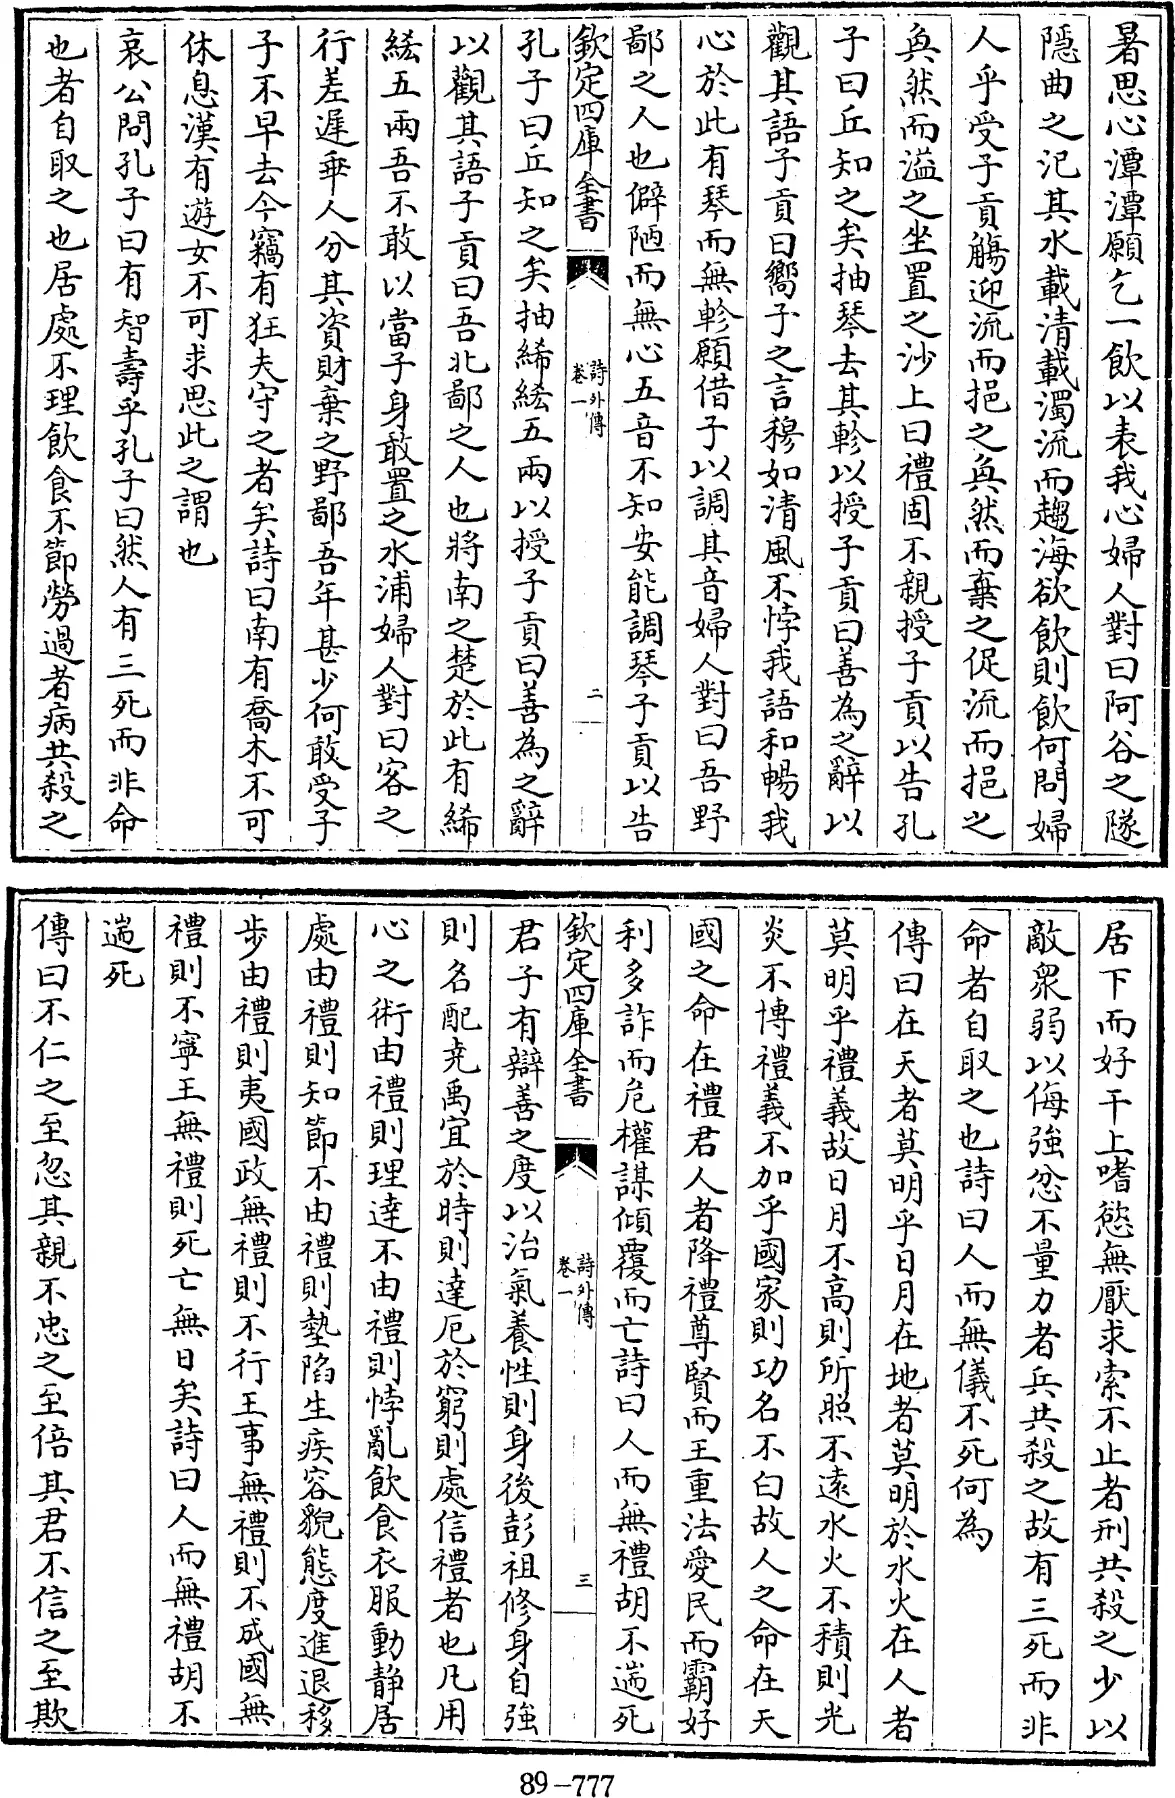 暑思心潭潭願乞一飲以表我心婦人對曰阿谷之隧
隱曲之汜其水載清載濁流而趨海欲飲則飲何問婦
人乎受子貢觴迎流而挹之奐然而棄之促流而挹之
奐然而溢之坐置之沙上曰禮固不親授子貢以告孔
子曰丘知之矣抽琴去其軫以授子貢曰善為之辭以
觀其語子貢曰嚮子之言穆如清風不悖我語和暢我
心於此有琴而無軫願借子以調其音婦人對曰吾野
鄙之人也僻陋而無心五音不知安能調琴子貢以告
欽定四庫全書
詩外傳
卷一
二
孔子曰丘知之矣抽絺綌五兩以授子貢曰善為之辭
以觀其語子貢曰吾北鄙之人也將南之楚於此有絺
綌五兩吾不敢以當子身敢置之水浦婦人對曰客之
行差遲乖人分其資財棄之野鄙吾年甚少何敢受子
子不早去今竊有狂夫守之者矣詩曰南有喬木不可
休息漢有遊女不可求思此之謂也
哀公問孔子曰有智壽乎孔子曰然人有三死而非命
也者自取之也居處不理飲食不節勞過者病共殺之
居下而好干上嗜慾無厭求索不止者刑共殺之少以
敵衆弱以侮強忿不量力者兵共殺之故有三死而非
命者自取之也詩曰人而無儀不死何為
傳曰在天者莫明乎日月在地者莫明於水火在人者
莫明乎禮義故日月不高則所照不遠水火不積則光
炎不博禮義不加乎國家則功名不白故人之命在天
國之命在禮君人者降禮尊賢而王重法愛民而霸好
利多詐而危權謀傾覆而亡詩曰人而無禮胡不遄死
欽定四庫全書
詩外傳
卷一
三
君子有辯善之度以治氣養性則身後彭祖修身自強
則名配堯禹宜於時則達厄於窮則處信禮者也凡用
心之術由禮則理達不由禮則悖亂飲食衣服動靜居
處由禮則知節不由禮則墊陷生疾容貌態度進退移
步由禮則夷國政無禮則不行王事無禮則不成國無
禮則不寧王無禮則死亡無日矣詩曰人而無禮胡不
遄死
傳曰不仁之至忽其親不忠之至倍其君不信之至欺
89-777